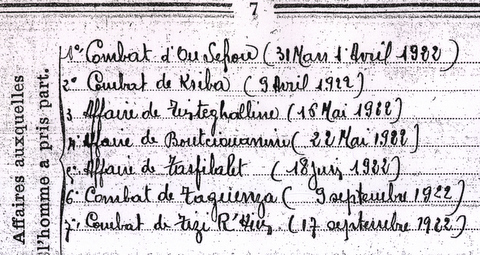 7
Affaires auxquelles
l'homme a pris part.
1° Combat d'Ou Sefrou (31 Mars 1 Avril 1922)
2° Combat de Ksiba (9 Avril 1922)
3 Affaire de Tizteghalline (16 Mai 1922)
4° Affaire de (22 Mai 1922)
5° Affaire de Tasfilalet (18 juin 1922)
6° Combat de Taguenza (9 septembre 1922)
7° Combat de Tizi (17 septembre 1922)